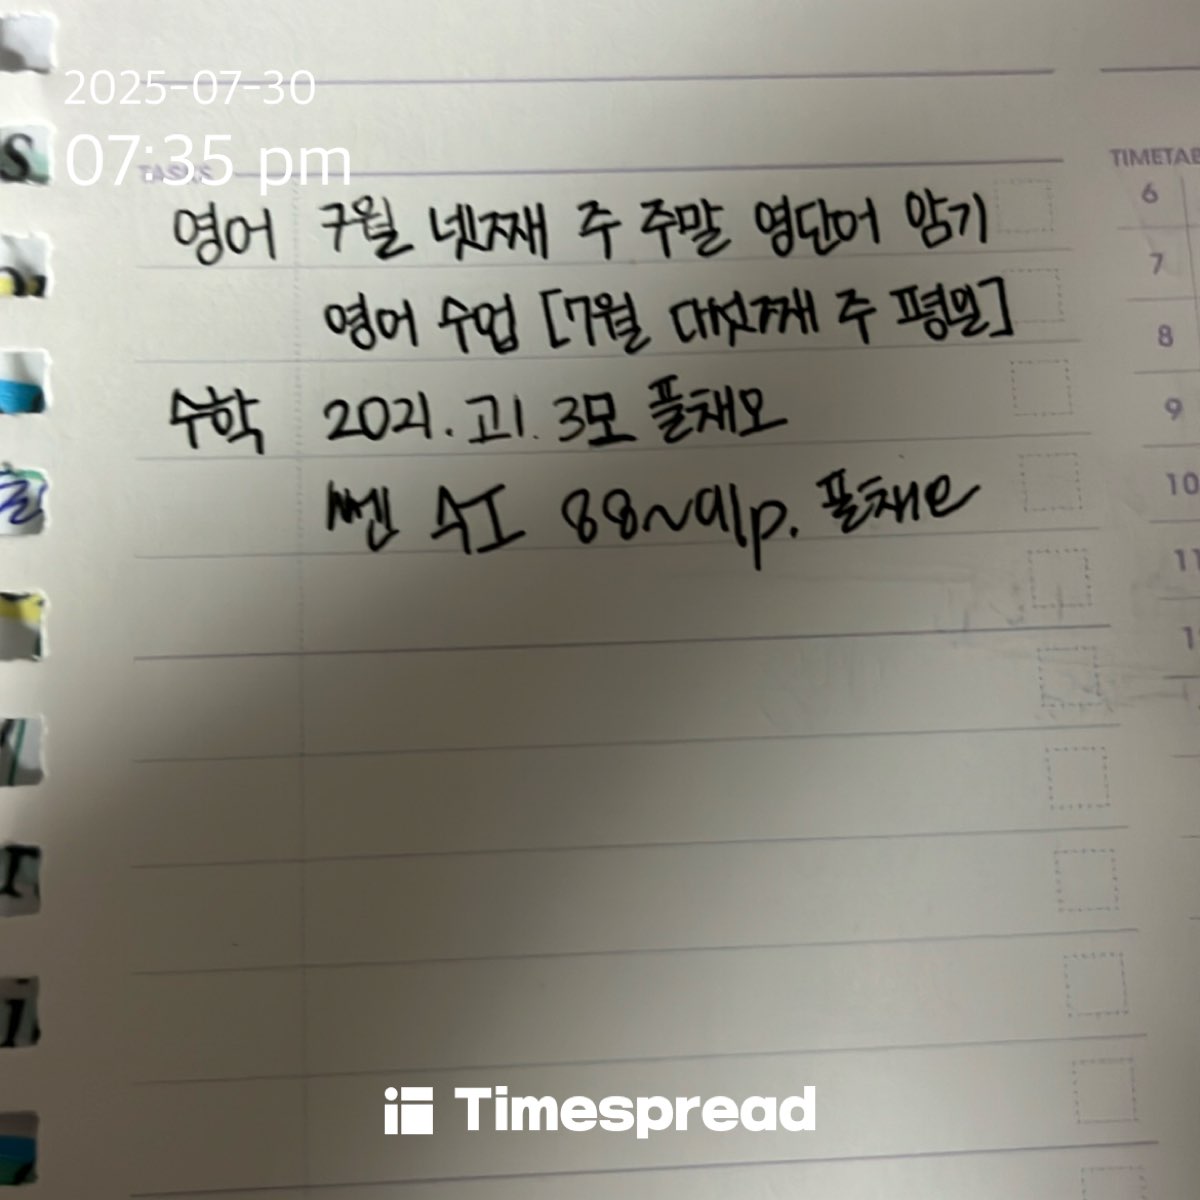 2025-07-30
07:35 pm
TASKS
TIMETAB
영어 7월 넷째 주 주말 영단어 암기
영어 수업 [7월 다섯째 주 평일]
수학 2021. 고1. 3모 풀채오
쎈 수I 88~91p. 풀채오
6
7
8
9
10
11
1
Timespread